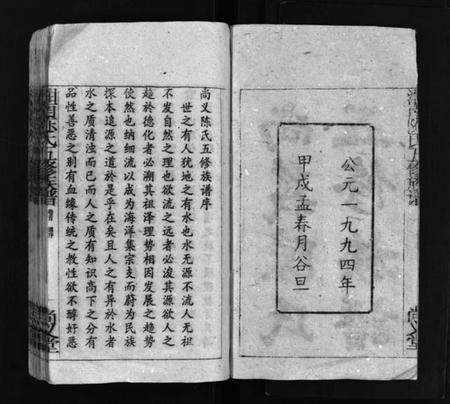 公元一九九四年
甲戌孟春月谷旦
尚义堂
尚义陈氏五修族谱序
世之有人犹地之有水也水无源不流人无祖
不发自然之理也欲流之远者必浚其源欲人之
趋於德化者必溯其祖泽理势相因发展之趋势
使然也纳细流以成为海洋集宗支而蔚为民族
探本追源之道於是乎在矣且人之有异於水者
水之质清浊而已而人之质有知识高下之分有
品性善恶之别有血缘传统之教性欲不醇好恶
五修族谱
尚义堂